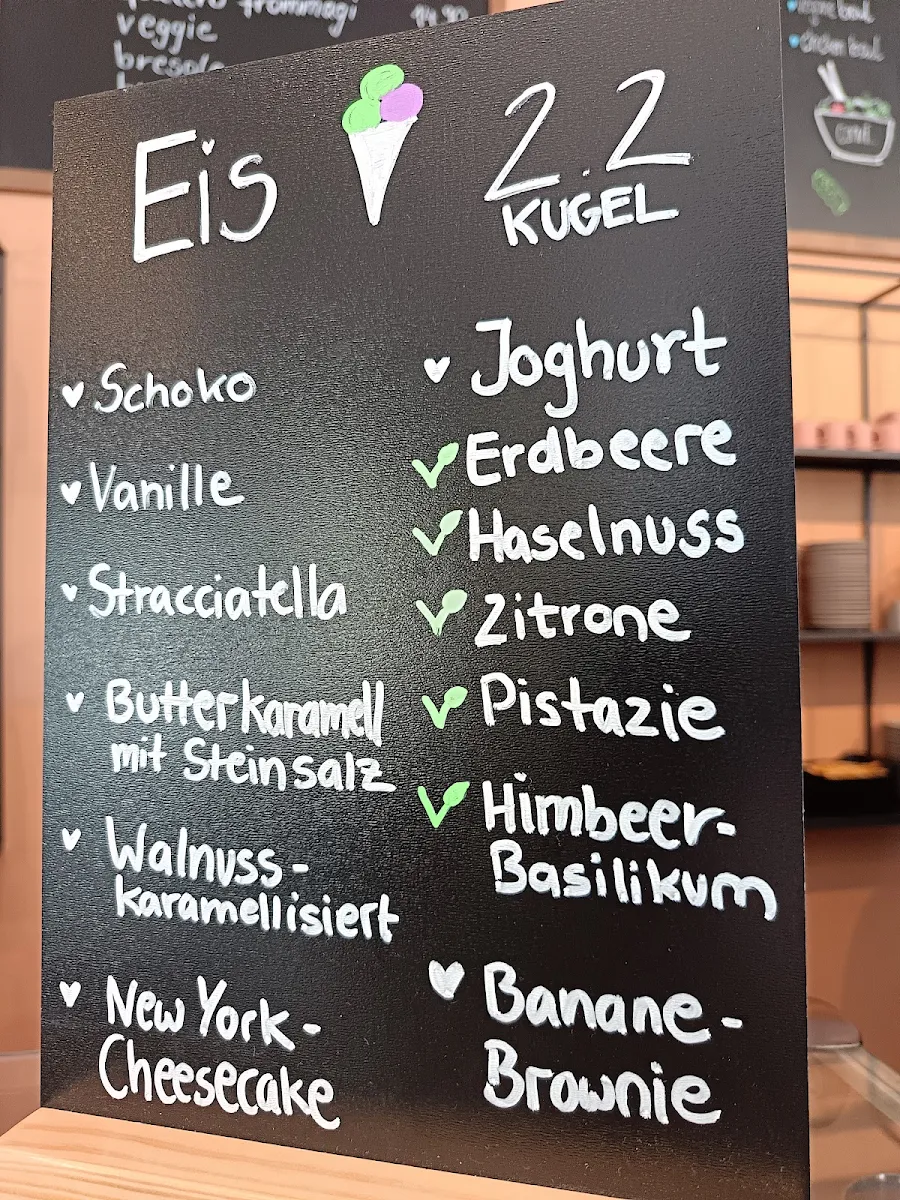 veggie
Eis 2.2
KUGEL
Schoko
Vanille
Stracciatella
Butterkaramell
mit Steinsalz
Walnuss-
karamellisiert
New York-
Cheesecake
Joghurt
Erdbeere
Haselnuss
Zitrone
Pistazie
Himbeer-
Basilikum
Banane-
Brownie